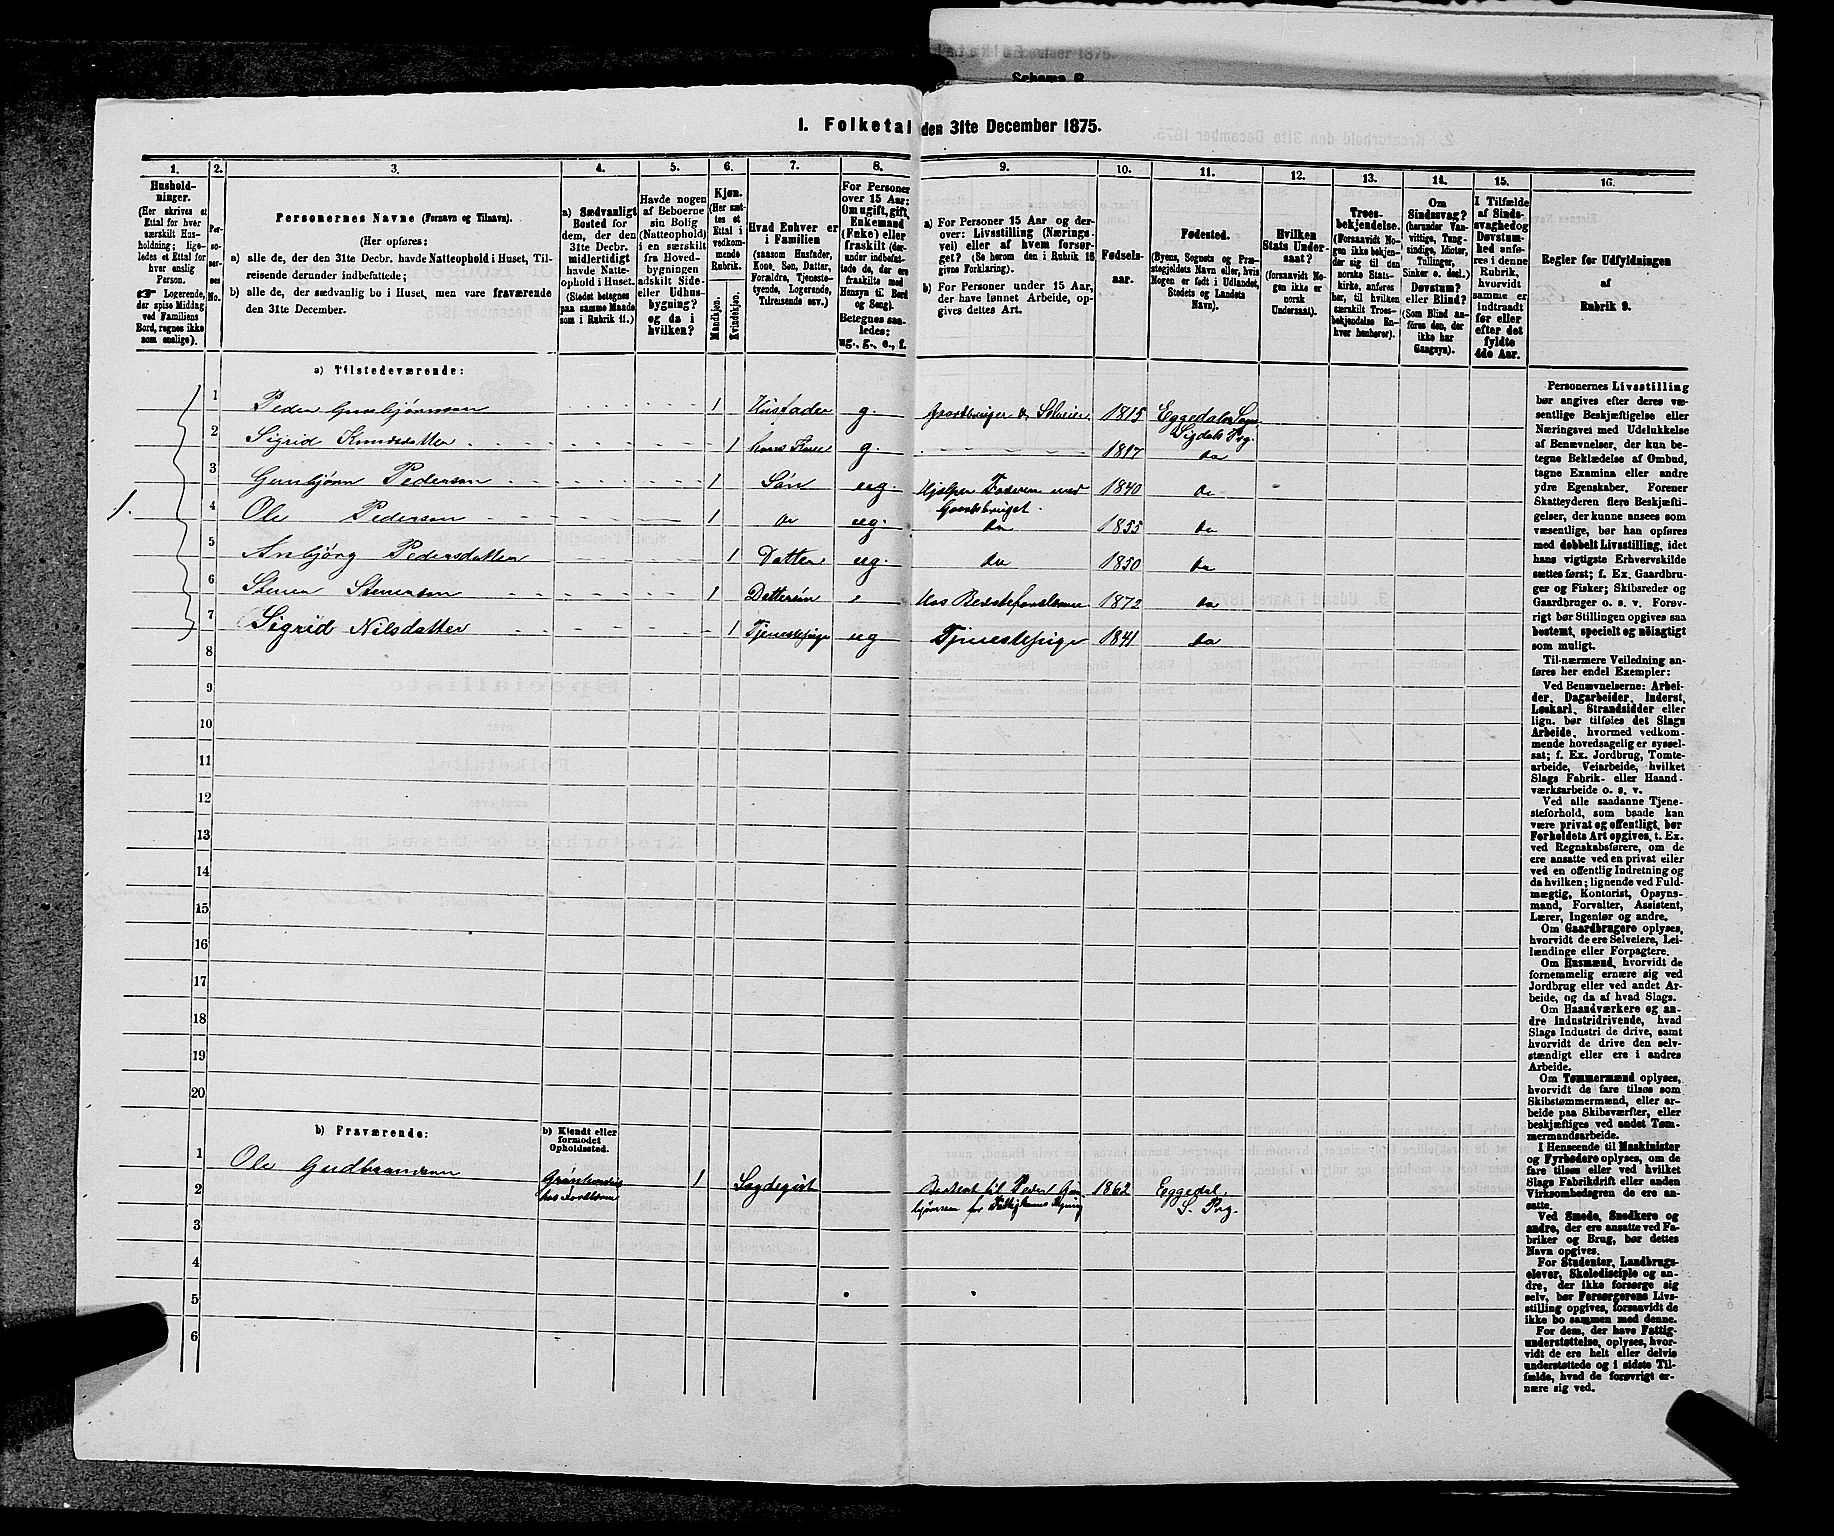 Schema B.
1. Folketal den 31te December 1875.
1. 2. 3. 4. 5. 6. 7. 8. 9. 10. 11. 12. 13. 14. 15. 16.
Hushold-
ninger.
(Her skrives et
Ettal for hver
særskilt Hus-
holdning; lige-
ledes et Ettal for
hver enslig
Person.
☞ Logerende,
der spise Middag
ved Familiens
Bord, regnes ikke
som enslige).
Per-
so-
ner-
nes
No.
Personernes Navne (Fornavn og Tilnavn).
(Her opføres:
a) alle de, der den 31te Decbr. havde Natteophold i Huset, Til-
reisende derunder indbefattede;
b) alle de, der sædvanlig bo i Huset, men vare fraværende
den 31te December.
a) Sædvanligt
Bosted for
dem, der den
31te Decbr.
midlertidigt
havde Natte-
ophold i Huset.
(Stedet betegnes
paa samme Maade
som i Rubrik 11.)
Havde nogen
af Beboerne
sin Bolig
(Natteophold)
i en særskilt
fra Hoved-
bygningen
adskilt Side-
eller Udhus-
bygning?
og da i
hvilken?
Kjøn.
(Her sæt-
tes et
Ettal i
vedkom-
mende
Rubrik.
Mandkjøn.
Kvindekjøn.
Hvad Enhver er
i Familien
(saasom Husfader,
Kone, Søn, Datter,
Forældre, Tjeneste-
tyende, Logerende,
Tilreisende osv.)
For Personer
over 15 Aar:
Om ugift, gift,
Enkemand
(Enke) eller
fraskilt (der-
under indbefat-
tede de, der ere
fraskilte med
Hensyn til Bord
og Seng).
Betegnes saa-
ledes:
ug., g., e., f.
a) For Personer 15 Aar og der-
over: Livsstilling (Nærings-
vei) eller af hvem forsør-
get? (Se herom den i Rubrik 16
givne Forklaring).
b) For Personer under 15 Aar,
der have lønnet Arbeide, op-
gives dettes Art.
Fødsels-
aar.
Fødested.
(Byens, Sognets og Præ-
stegjeldets Navn eller, hvis
Nogen er født i Udlandet,
Stedets og Landets
Navn).
Hvilken
Stats Under-
saat?
(forsaavidt No-
gen ikke er
norsk
Undersaat).
Troes-
bekjendelse.
(Forsaavidt No-
gen ikke bekjen-
der sig til den
norske Stats-
kirke, anføres
her, til hvilken
særskilt Troes-
bekjendelse En-
hver henhører).
Om
Sindssvag?
(herunder Van-
vittige, Tung-
sindige, Idioter,
Tullinger,
Sinker o. desl.)
Døvstum?
eller Blind?
(Som Blind an-
føres den, der
ikke har
Gangsyn).
I Tilfælde
af Sinds-
svaghed og
Døvstum-
hed anfø-
res i denne
Rubrik,
hvorvidt
samme er
indtraadt
før eller
efter det
fyldte
4de Aar.
Regler for Udfyldningen
af
Rubrik 9.
a) Tilstedeværende:
1.
1 Peder Gunbjørnsen 1 Husfader g. Gaardbruger & Selveier 1815 Eggedals Sogn Sigdals Prg.
2 Sigrid Knudsdatter 1 hans Kone g. 1817 do
3 Gunbjørn Pedersen 1 Søn ug. Hjelper Faderen med Gaardsbruget. 1840 do
4 Ole Pedersen 1 do ug. do 1855 do
5 Anbjørg Pedersdatter 1 Datter ug. do 1850 do
6 Stener Stenersen 1 Dattersøn Hos Bedsteforældrene 1872 do
7 Sigrid Nilsdatter 1 Tjenestepige ug Tjenestepige 1841 do
8
9
10
11
12
13
14
15
16
17
18
19
20
b) Fraværende:
b) Kjendt eller
formodet
Opholdssted.
1 Ole Gudbrandsen 1 Lægdegut 1862 Eggedal. S. Prg.
2
3
4
5
6
Personernes Livsstilling
bør angives efter deres væ-
sentlige Beskjæftigelse eller
Næringsvei med Udelukkelse
af Benævnelser, der kun be-
tegne Beklædelse af Ombud,
tagne Examina eller andre
ydre Egenskaber. Forener
Skatteyderen flere Beskjæfti-
gelser, der kunne ansees som
væsentlige, bør han opføres
med dobbelt Livsstilling, idet
hans vigtigste Erhvervskilde
sættes først; f. Ex. Gaardbru-
ger og Fisker; Skibsreder og
Gaardbruger o. s. v. Forøv-
rigt bør Stillingen opgives saa
bestemt, specielt og nøiagtigt
som muligt.
Til nærmere Veiledning an-
føres her endel Exempler:
Ved Benævnelserne: Arbei-
der, Dagarbeider, Inderst,
Løskarl, Strandsidder eller
lign. bør tilføies det Slags
Arbeide, hvormed vedkom-
mende hovedsagelig er syssel-
sat; f. Ex. Jordbrug, Tomte-
arbeide, Veiarbeide, hvilket
Slags Fabrik- eller Haand-
værksarbeide o. s. v.
Ved alle saadanne Tjene-
steforhold, som baade kan
være privat og offentligt, bør
Forholdets Art opgives, t. Ex.
ved Regnskabsførere, om de
ere ansatte ved en privat eller
ved en offentlig Indretning og
da hvilken; lignende ved Fuld-
mægtig, Kontorist, Opsyns-
mand, Forvalter, Assistent,
Lærer, Ingeniør og andre.
Om Gaardbrugere oplyses,
hvorvidt de ere Selveiere, Lei-
lændinge eller Forpagtere.
Om Husmænd, hvorvidt de
fornemmelig ernære sig ved
Jordbrug eller ved andet Ar-
beide, og da af hvad Slags.
Om Haandværkere og an-
dre Industridrivende, hvad
Slags Industri de drive, samt
hvorvidt de drive den selv-
stændigt eller ere i andres
Arbeide.
Om Tømmermænd oplyses,
hvorvidt de fare tilsøs som
Skibstømmermænd, eller ar-
beide paa Skibsværfter, eller
beskjæftiges ved andet Tøm-
mermandsarbeide.
I Henseende til Maskinister
og Fyrbødere oplyses, om de
fare tilsøs eller ved hvilket
Slags Fabrikdrift eller anden
Virksomhedsgren de ere an-
satte.
Ved Smede, Snedkere og
andre, der ere ansatte ved Fa-
briker og Brug, bør dettes
Navn opgives.
For Studenter, Landbrugs-
elever, Skoledisciple og an-
dre, der ikke forsørge sig
selv, bør Forsørgerens Livs-
stilling opgives, forsaavidt de
ikke bo sammen med denne.
For dem, der have Fattig-
understøttelse, oplyses, hvor-
vidt de ere helt eller delvis
understøttede og i sidste Til-
fælde, hvad de forøvrigt er-
nære sig ved.